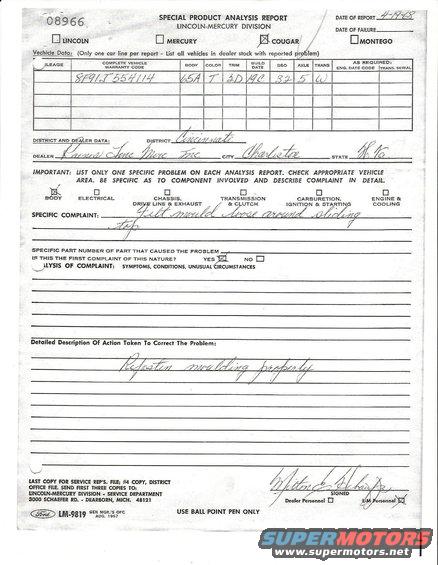 08966
SPECIAL PRODUCT ANALYSIS REPORT
LINCOLN-MERCURY DIVISION
DATE OF REPORT 4-19-68
DATE OF FAILURE
LINCOLN MERCURY COUGAR MONTEGO
Vechicle Data: (Only one car line per report - List all vehicles in dealer stock with reported problem)
MILEAGE COMPLETE VEHICLE WARRANTY CODE BODY COLOR TRIM BUILD DATE DSO AXLE TRANS AS REQUIRED: ENG. DATE CODE TRANS. SERIAL
8F91J554114 65A T 2D 19C 32 5 W
DISTRICT AND DEALER DATA: DISTRICT Cincinnati
DEALER Linc Merc Inc CITY STATE W. Va
IMPORTANT: LIST ONLY ONE SPECIFIC PROBLEM ON EACH ANALYSIS REPORT. CHECK APPROPRIATE VEHICLE
AREA. BE SPECIFIC AS TO COMPONENT INVOLVED AND DESCRIBE COMPLAINT IN DETAIL.
BODY ELECTRICAL CHASSIS, DRIVE LINE & EXHAUST TRANSMISSION & CLUTCH CARBURETION, IGNITION & STARTING ENGINE & COOLING
SPECIFIC COMPLAINT: mould loose around sliding
top
SPECIFIC PART NUMBER OF PART THAT CAUSED THE PROBLEM
IF THIS THE FIRST COMPLAINT OF THIS NATURE? YES NO
ALYSIS OF COMPLAINT: SYMPTOMS, CONDITIONS, UNUSUAL CIRCUMSTANCES
Detailed Description Of Action Taken To Correct The Problem:
Refasten moulding properly
LAST COPY FOR SERVICE REP'S. FILE; #4 COPY, DISTRICT
OFFICE FILE. SEND FIRST THREE COPIES TO:
LINCOLN-MERCURY DIVISION - SERVICE DEPARTMENT
3000 SCHAEFER RD. - DEARBORN, MICH. 48121
SIGNED
Dealer Personnel L-M Personnel
Ford LM-9819 GEN MGR.'S OFC AUG. 1967
USE BALL POINT PEN ONLY
SUPERMOTORS
www.supermotors.net